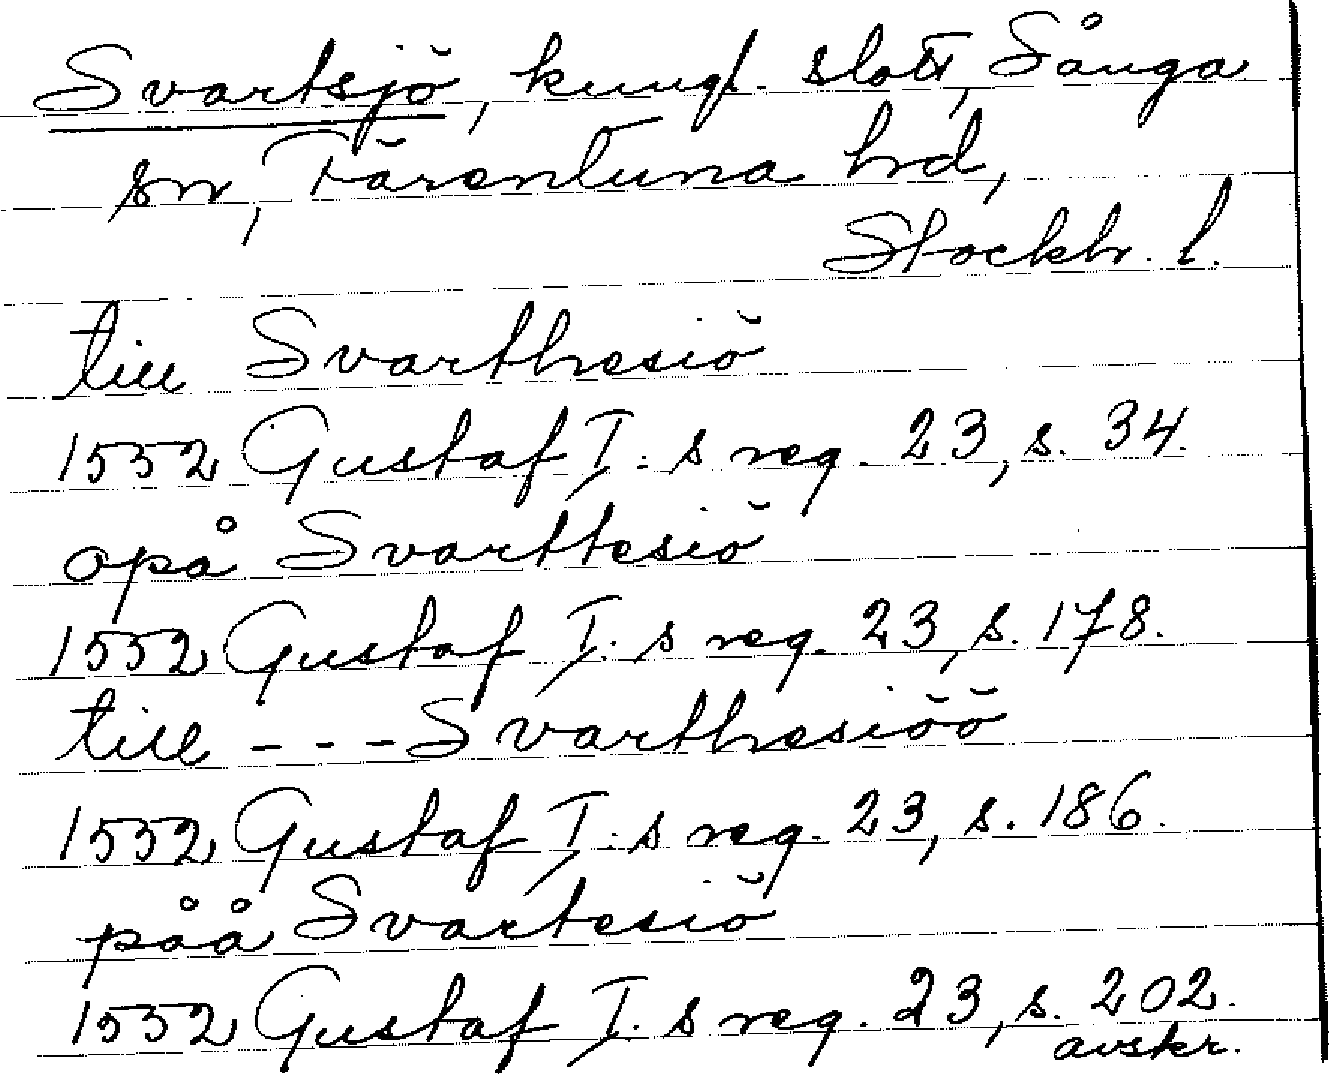 Svartsjö, kungl. slott, Sånga
sn, Färentuna hrd,
Stockh. l.
till Svarthesiö
1552 Gustaf I:s reg. 23, s. 34.
opå Svarttesiö
1552 Gustaf I:s reg. 23, s. 178.
till - - - Svarthesiöö
1552 Gustaf I:s reg. 23, s. 186.
påå Svartesiö
1552 Gustaf I:s reg. 23, s. 202.
avskr.